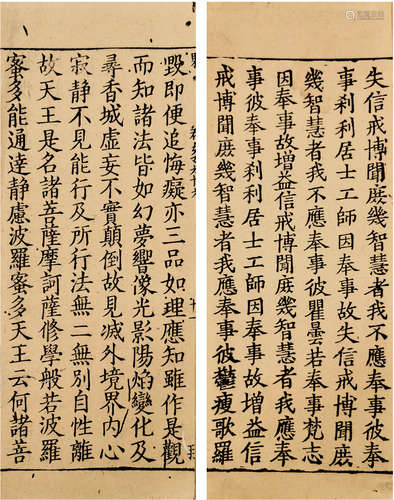 失信戒博聞庻幾智慧者我不應奉事彼奉
事刹利居士工師因奉事故失信戒博聞庻
幾智慧者我不應奉事彼瞿曇若奉事梵志
因奉事故增益信戒博聞庻幾智慧者我應奉
事彼奉事刹利居士工師因奉事故增益信
戒博聞庻幾智慧者我應奉事彼欝瘦歌羅
毀即便追悔癡亦三品如理應知雖作是觀
而知諸法皆如幻夢響像光影陽焰變化及
尋香城虛妄不實顛倒故見滅外境界內心
寂静不見能行及所行法無二無別自性離
故天王是名諸菩薩摩訶薩修學般若波羅
蜜多能通達静慮波羅蜜多天王云何諸菩